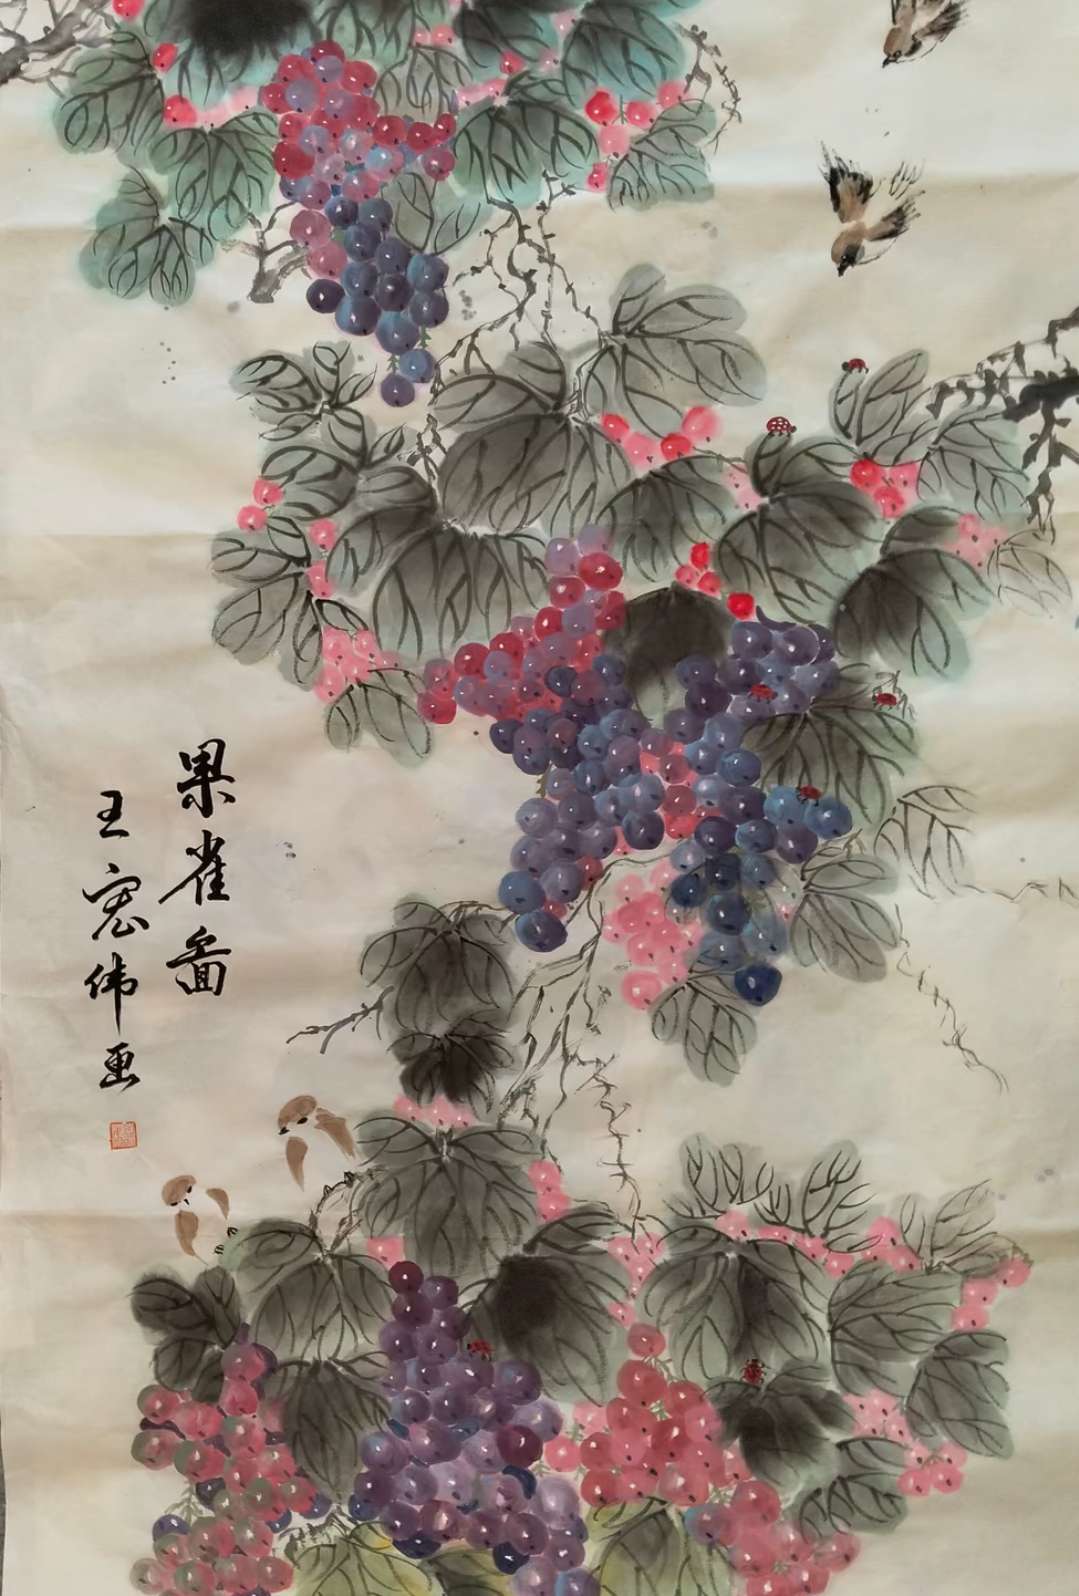 果雀图
王宏伟画